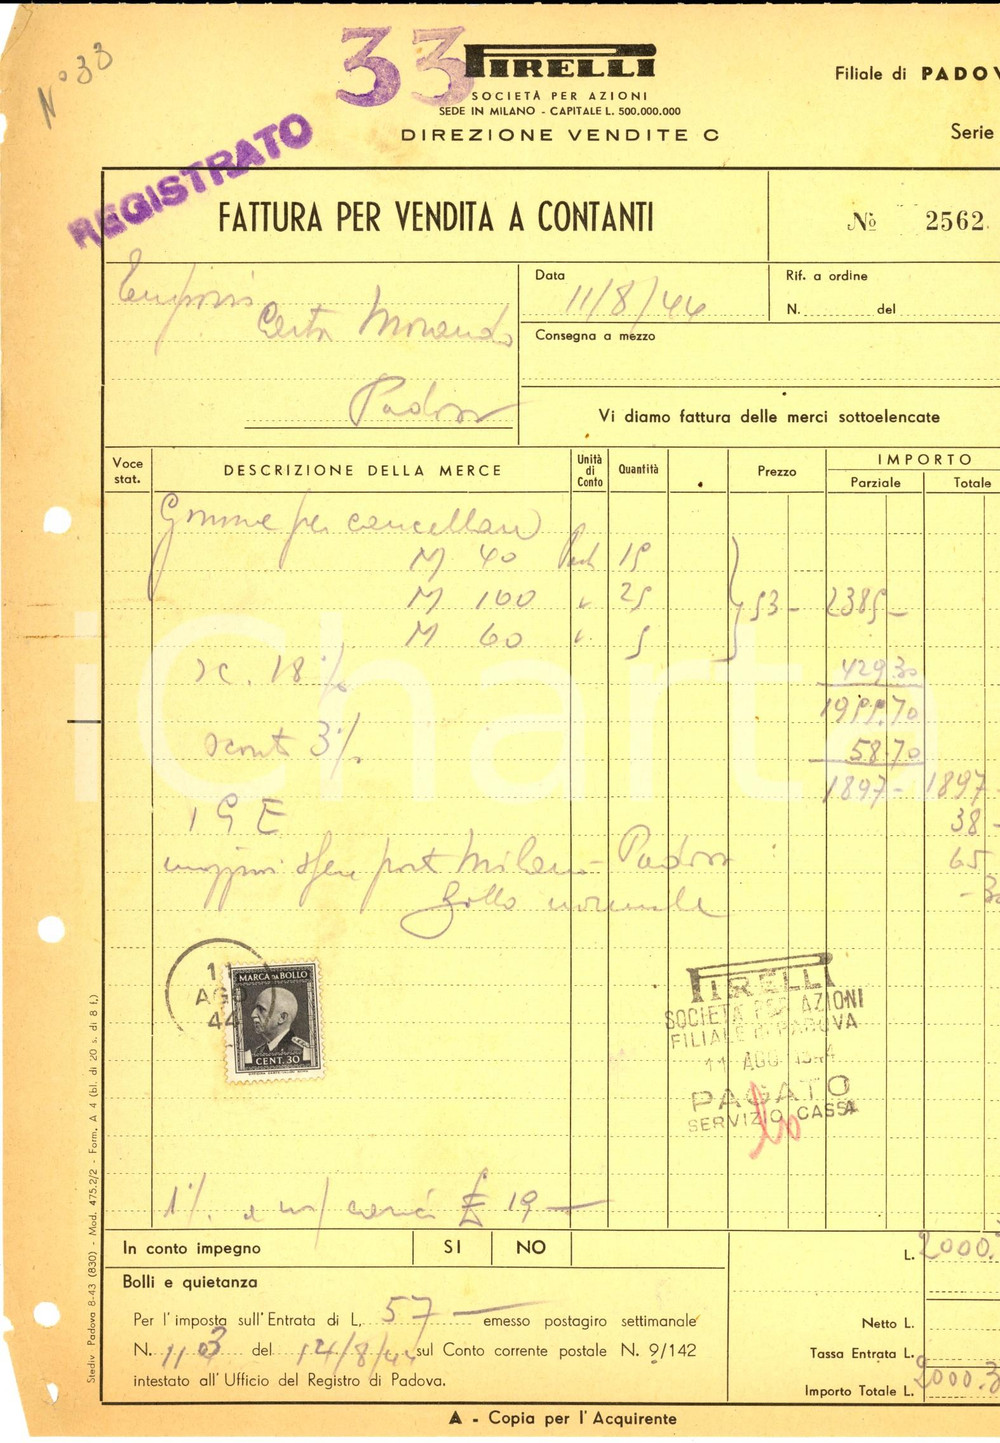 N° 33
33
PIRELLI
SOCIETÀ PER AZIONI
SEDE IN MILANO - CAPITALE L. 500.000.000
DIREZIONE VENDITE C
Filiale di PADOV
Serie
REGISTRATO
FATTURA PER VENDITA A CONTANTI
Nº 2562
Carta Morando
Padova
Data 11/8/44
Rif. a ordine
N. del
Consegna a mezzo
Vi diamo fattura delle merci sottoelencate
Voce stat.
DESCRIZIONE DELLA MERCE
Unità di Conto
Quantità
Prezzo
IMPORTO
Parziale
Totale
Gomme per cancellare
M 40 15
M 100 " 25 53- 2385-
M 60 " 5
sc. 18% 429.30
1955.70
sconto 3% 58.70
1897- 1897-
IGE 38-
port Milano-Padova 65
bollo normale -30
11 AGO 44
MARCA DA BOLLO
CENT. 30
PIRELLI
SOCIETÀ PER AZIONI
FILIALE DI PADOVA
11 AGO 1944
PAGATO
SERVIZIO CASSA
1% a £ 19-
In conto impegno SI NO
L. 2000.
Bolli e quietanza
Per l'imposta sull'Entrata di L. 57 emesso postagiro settimanale
N. 113 del 14/8/44 sul Conto corrente postale N. 9/142
intestato all'Ufficio del Registro di Padova.
Netto L.
Tassa Entrata L.
Importo Totale L. 2000.3
A - Copia per l'Acquirente
Stediv. Padova 8-43 (830) - Mod. 475.2/2 - Form. A 4 (bl. di 20 s. di 8 f.)
iCharta